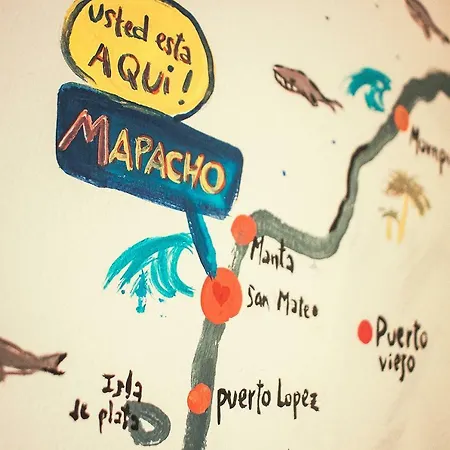 usted esta
AQUi!
MAPACHO
Manta
San Mateo
Puerto
viejo
Isla
de plata
puerto Lopez